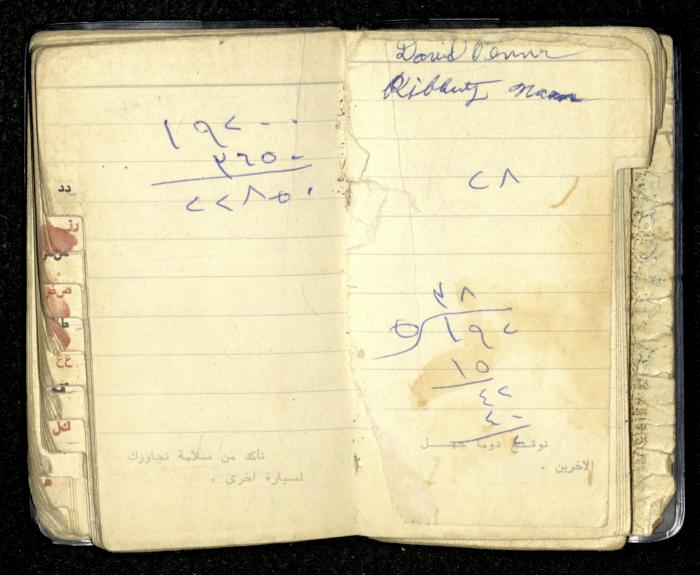 David Penur
Kibbutz Naan
١٩٢٠٠
٣٦٥٠
٢٢٨٥٠
٢٨
٣٨
٥ ١٩٢
١٥
٤٢
٤٠
٢
تأكد من سلامة تجاوزك
لسيارة اخرى .
توقع دوما جهل
الاخرين .
دد